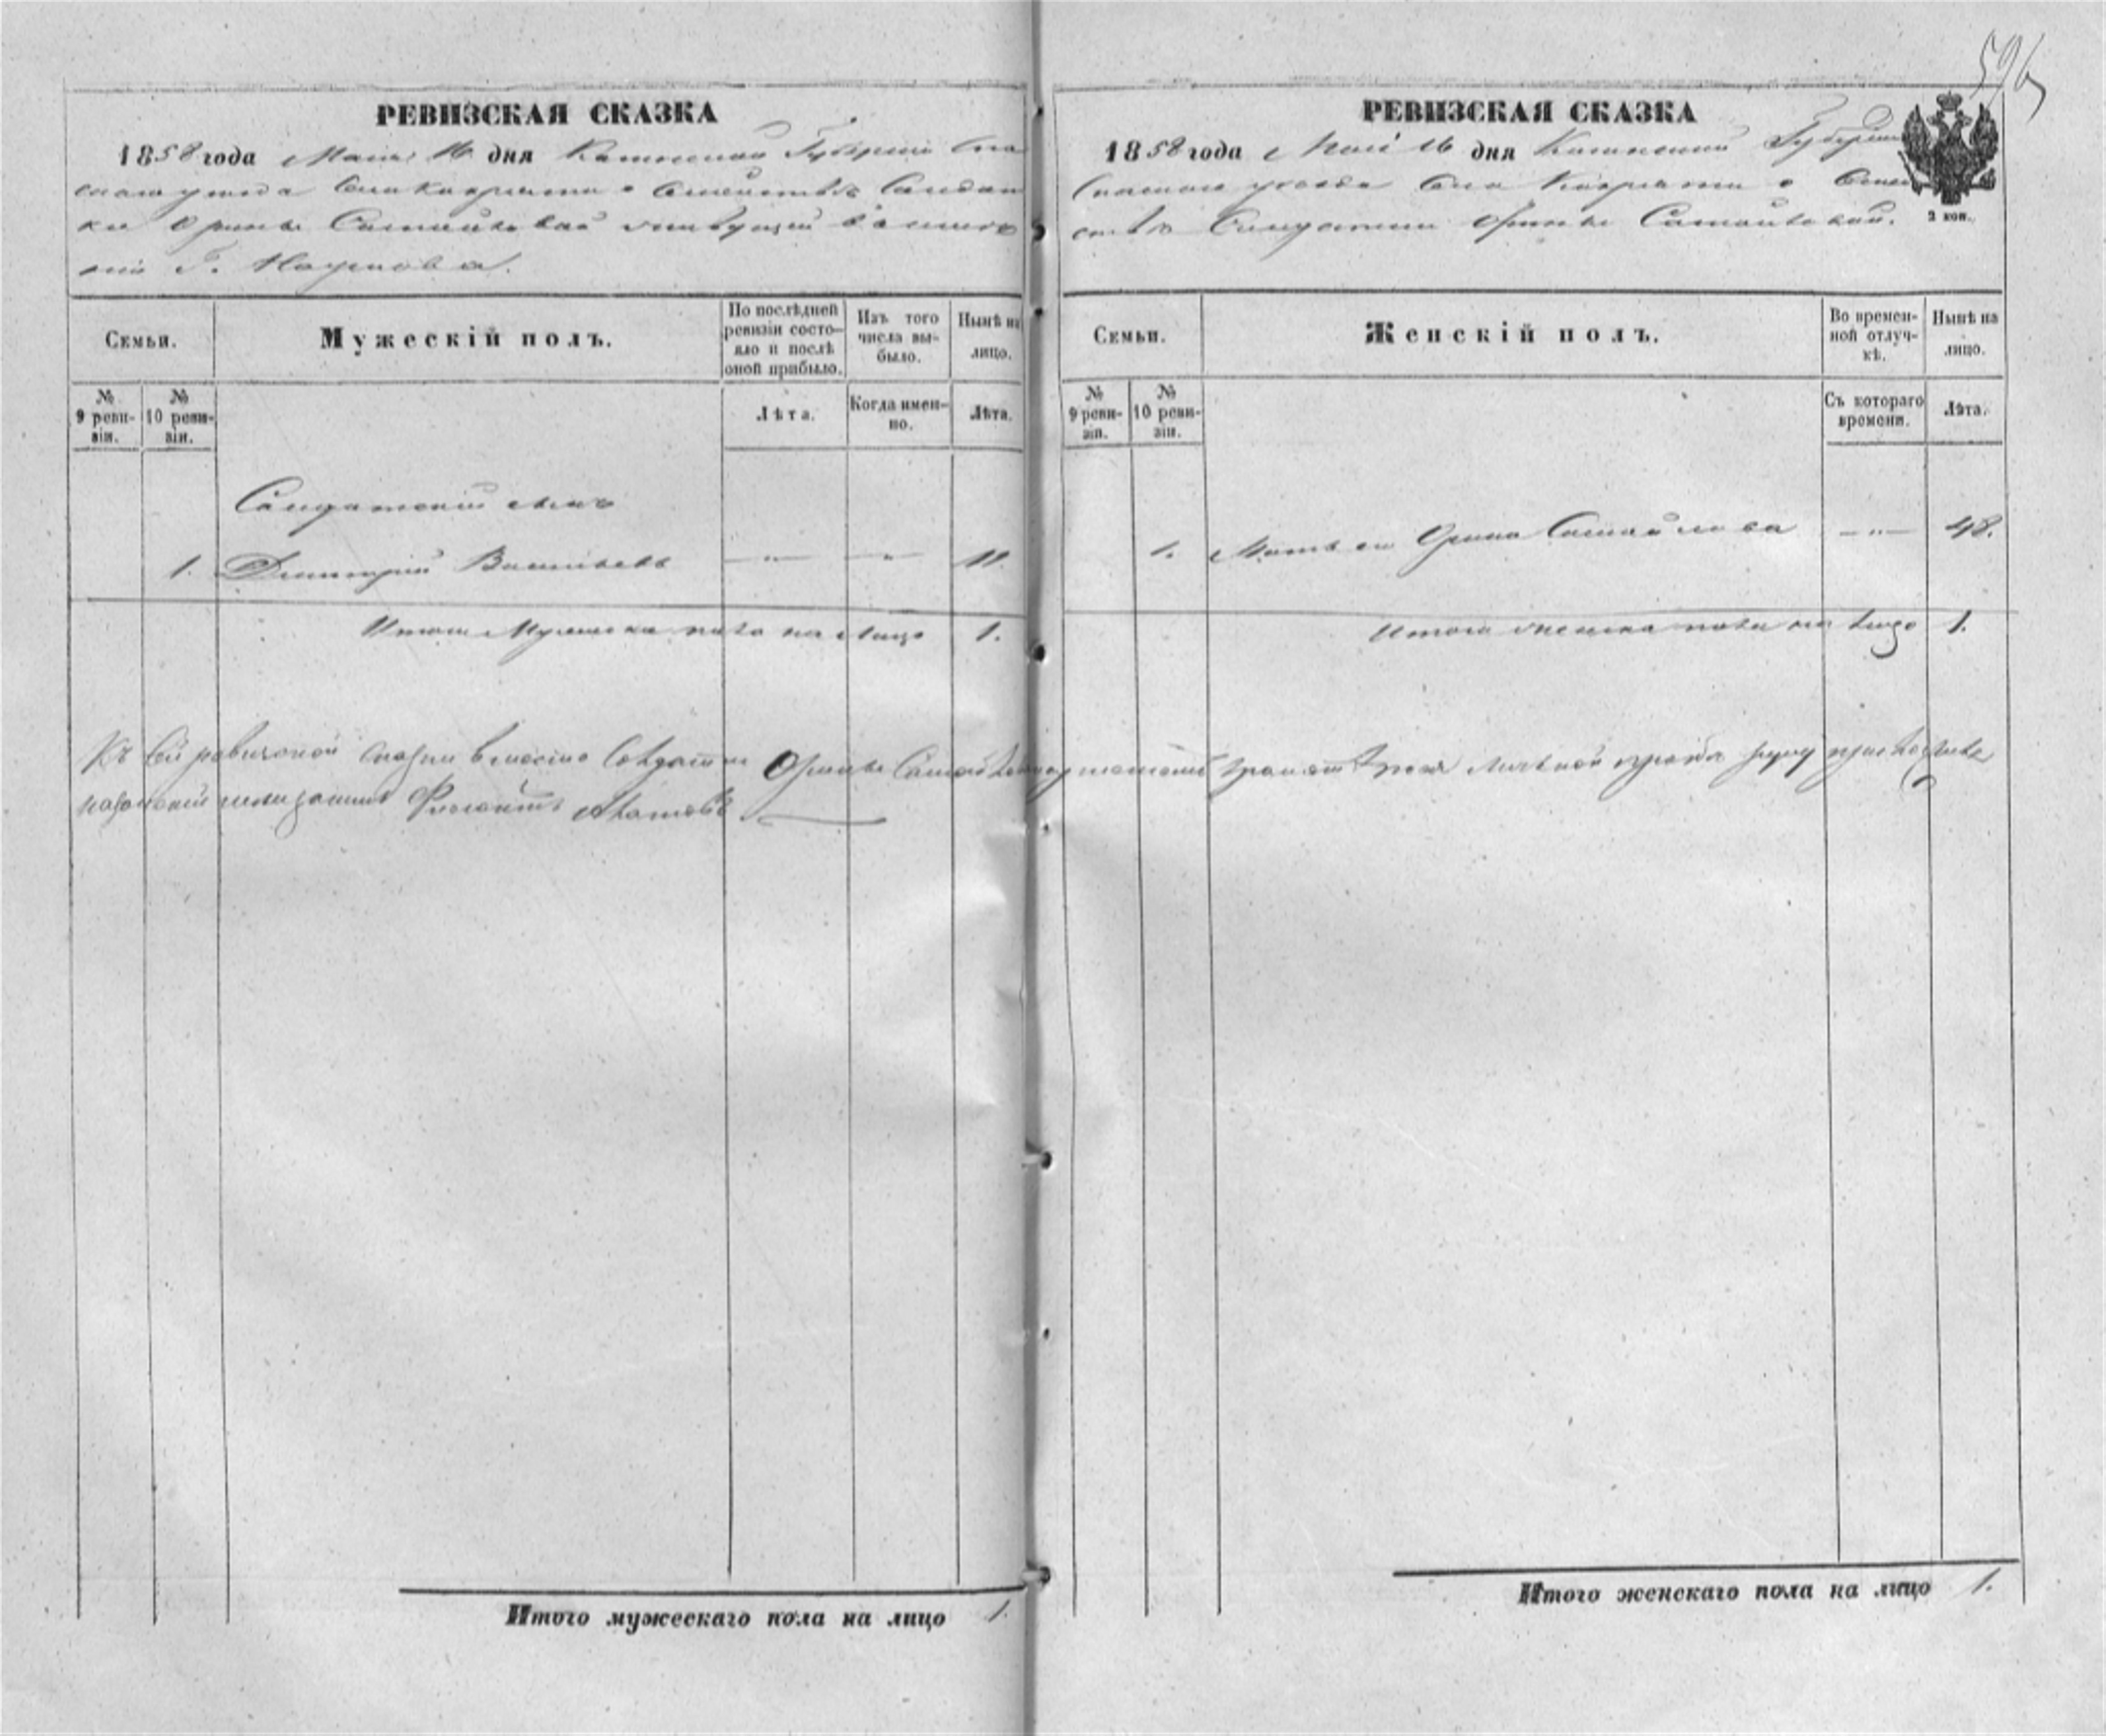 596
РЕВИЗСКАЯ СКАЗКА
1858 года Маія 16 дня Казанской Губерніи Спа
скаго уезда Села Кокряти о Семействе Солдат
ки Орины Самойловой живущей в имен
ніи Г. Наумова.
Семьи.
Мужескій полъ.
По послѣдней ревизіи состояло и послѣ оной прибыло.
Изъ того числа выбыло.
Нынѣ на лицо.
№ 9 ревизіи.
№ 10 ревизіи.
Лѣта.
Когда именно.
Лѣта.
Солдатскій сынъ
1. Дмитрій Васильевъ — " — — " — 11.
Итого Мужеска пола на Лицо 1.
Къ сей ревизской скаски вместо Солдатки Орины Самойловой руку приложилъ
Итого мужескаго пола на лицо 1.
РЕВИЗСКАЯ СКАЗКА
1858 года Маія 16 дня Казанской Губерніи
Спаскаго уезда Села Кокряти о Семей
стве Солдатки Орины Самойловой.
2 коп.
Семьи.
Женскій полъ.
Во временной отлучкѣ.
Нынѣ на лицо.
№ 9 ревизіи.
№ 10 ревизіи.
Съ котораго времени.
Лѣта.
1. Мать ево Орина Самойлова — " — 48.
Итого женска пола на лицо 1.
Итого женскаго пола на лицо 1.